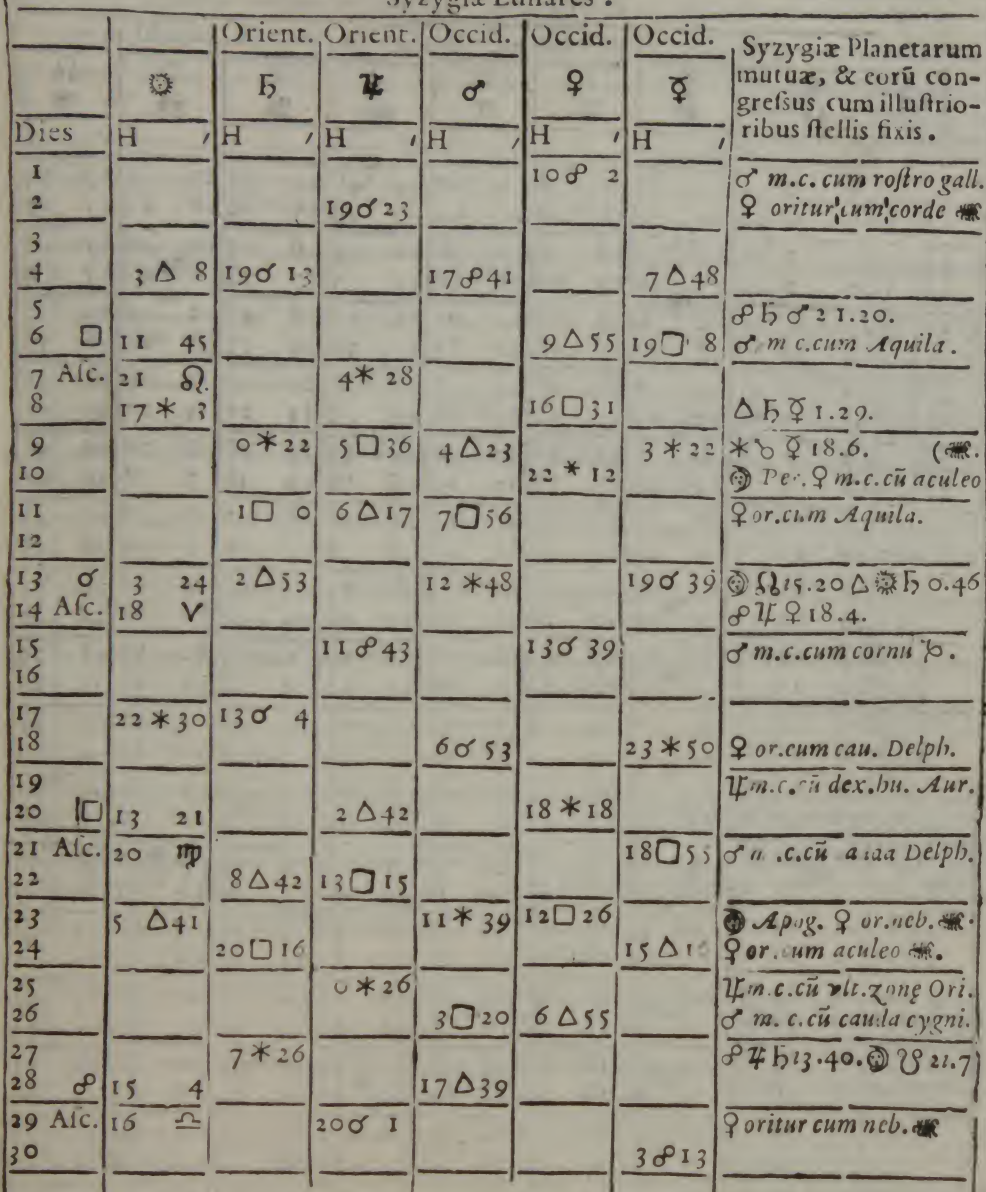 Syzygiæ Lunares .
Orient. Orient. Occid. Occid. Occid. Syzygiæ Planetarum mutuæ, & eorũ congreſsus cum illuſtrioribus ſtellis fixis.
☉ ♄ ♃ ♂ ♀ ☿
Dies H ′ H ′ H ′ H ′ H ′ H ′
1 10 ☍ 2 ♂ m.c. cum roſtro gall.
2 19 ☌ 23 ♀ oritur cum corde ♏
3
4 3 △ 8 19 ☌ 13 17 ☍ 41 7 △ 48
5 ☍ ♄ ♂ 21.20.
6 □ 11 45 9 △ 55 19 □ 8 ♂ m c.cum Aquila.
7 Aſc. 21 ♌ 4 ⚹ 28
8 17 ⚹ 3 16 □ 31 △ ♄ ☿ 1.29.
9 0 ⚹ 22 5 □ 36 4 △ 23 3 ⚹ 22 ⚹ ☿ 18.6. (♏.
10 22 ⚹ 12 ☽ Per. ♀ m.c.cũ aculeo
11 1 □ 0 6 △ 17 7 □ 56 ♀ or.cum Aquila.
12
13 ☌ 3 24 2 △ 53 12 ⚹ 48 19 ☌ 39 ☽ ☊ 15.20 △ ☉ ♄ 0.46
14 Aſc. 18 ♈ ☍ ♃ ♀ 18.4.
15 11 ☍ 43 13 ☌ 39 ♂ m.c.cum cornu ♑.
16
17 22 ⚹ 30 13 ☌ 4
18 6 ☌ 53 23 ⚹ 50 ♀ or.cum cau. Delph.
19 ♃ m.c.cũ dex.hu. Aur.
20 □ 13 21 2 △ 42 18 ⚹ 18
21 Aſc. 20 ♍ 18 □ 55 ♂ .c.cũ Delph.
22 8 △ 42 13 □ 15
23 5 △ 41 11 ⚹ 39 12 □ 26 ☽ Apog. ♀ or.neb. ♏.
24 20 □ 16 15 △ ♀ or.cum aculeo ♏.
25 0 ⚹ 26 ♃ m.c.cũ vlt.zonę Ori.
26 3 □ 20 6 △ 55 ♂ m. c.cũ cauda cygni.
27 7 ⚹ 26 ☍ ♃ ♄ 13.40. ☽ ☋ 21.7
28 ☍ 15 4 17 △ 39
29 Aſc. 16 ♎ 20 ☌ 1 ♀ oritur cum neb. ♏
30 3 ☍ 13